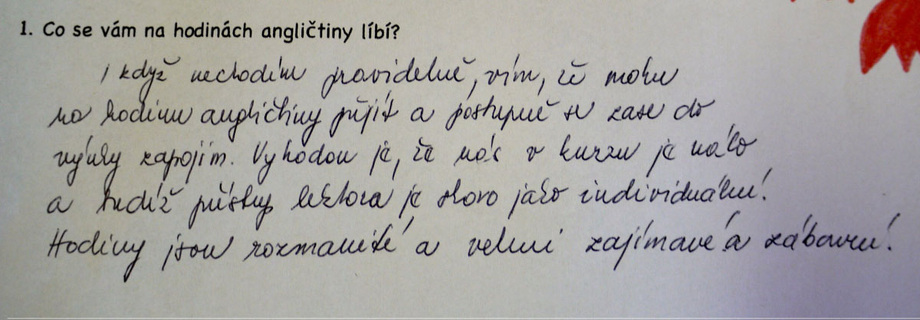 1. Co se vám na hodinách angličtiny líbí?
I když nechodím pravidelně, vím, že mohu
na hodinu angličtiny přijít a postupně se zase do
výuky zapojím. Výhodou je, že nás v kurzu je málo
a tudíž přístup lektora je skoro jako individuální.
Hodiny jsou rozmanité a velmi zajímavé a zábavné.